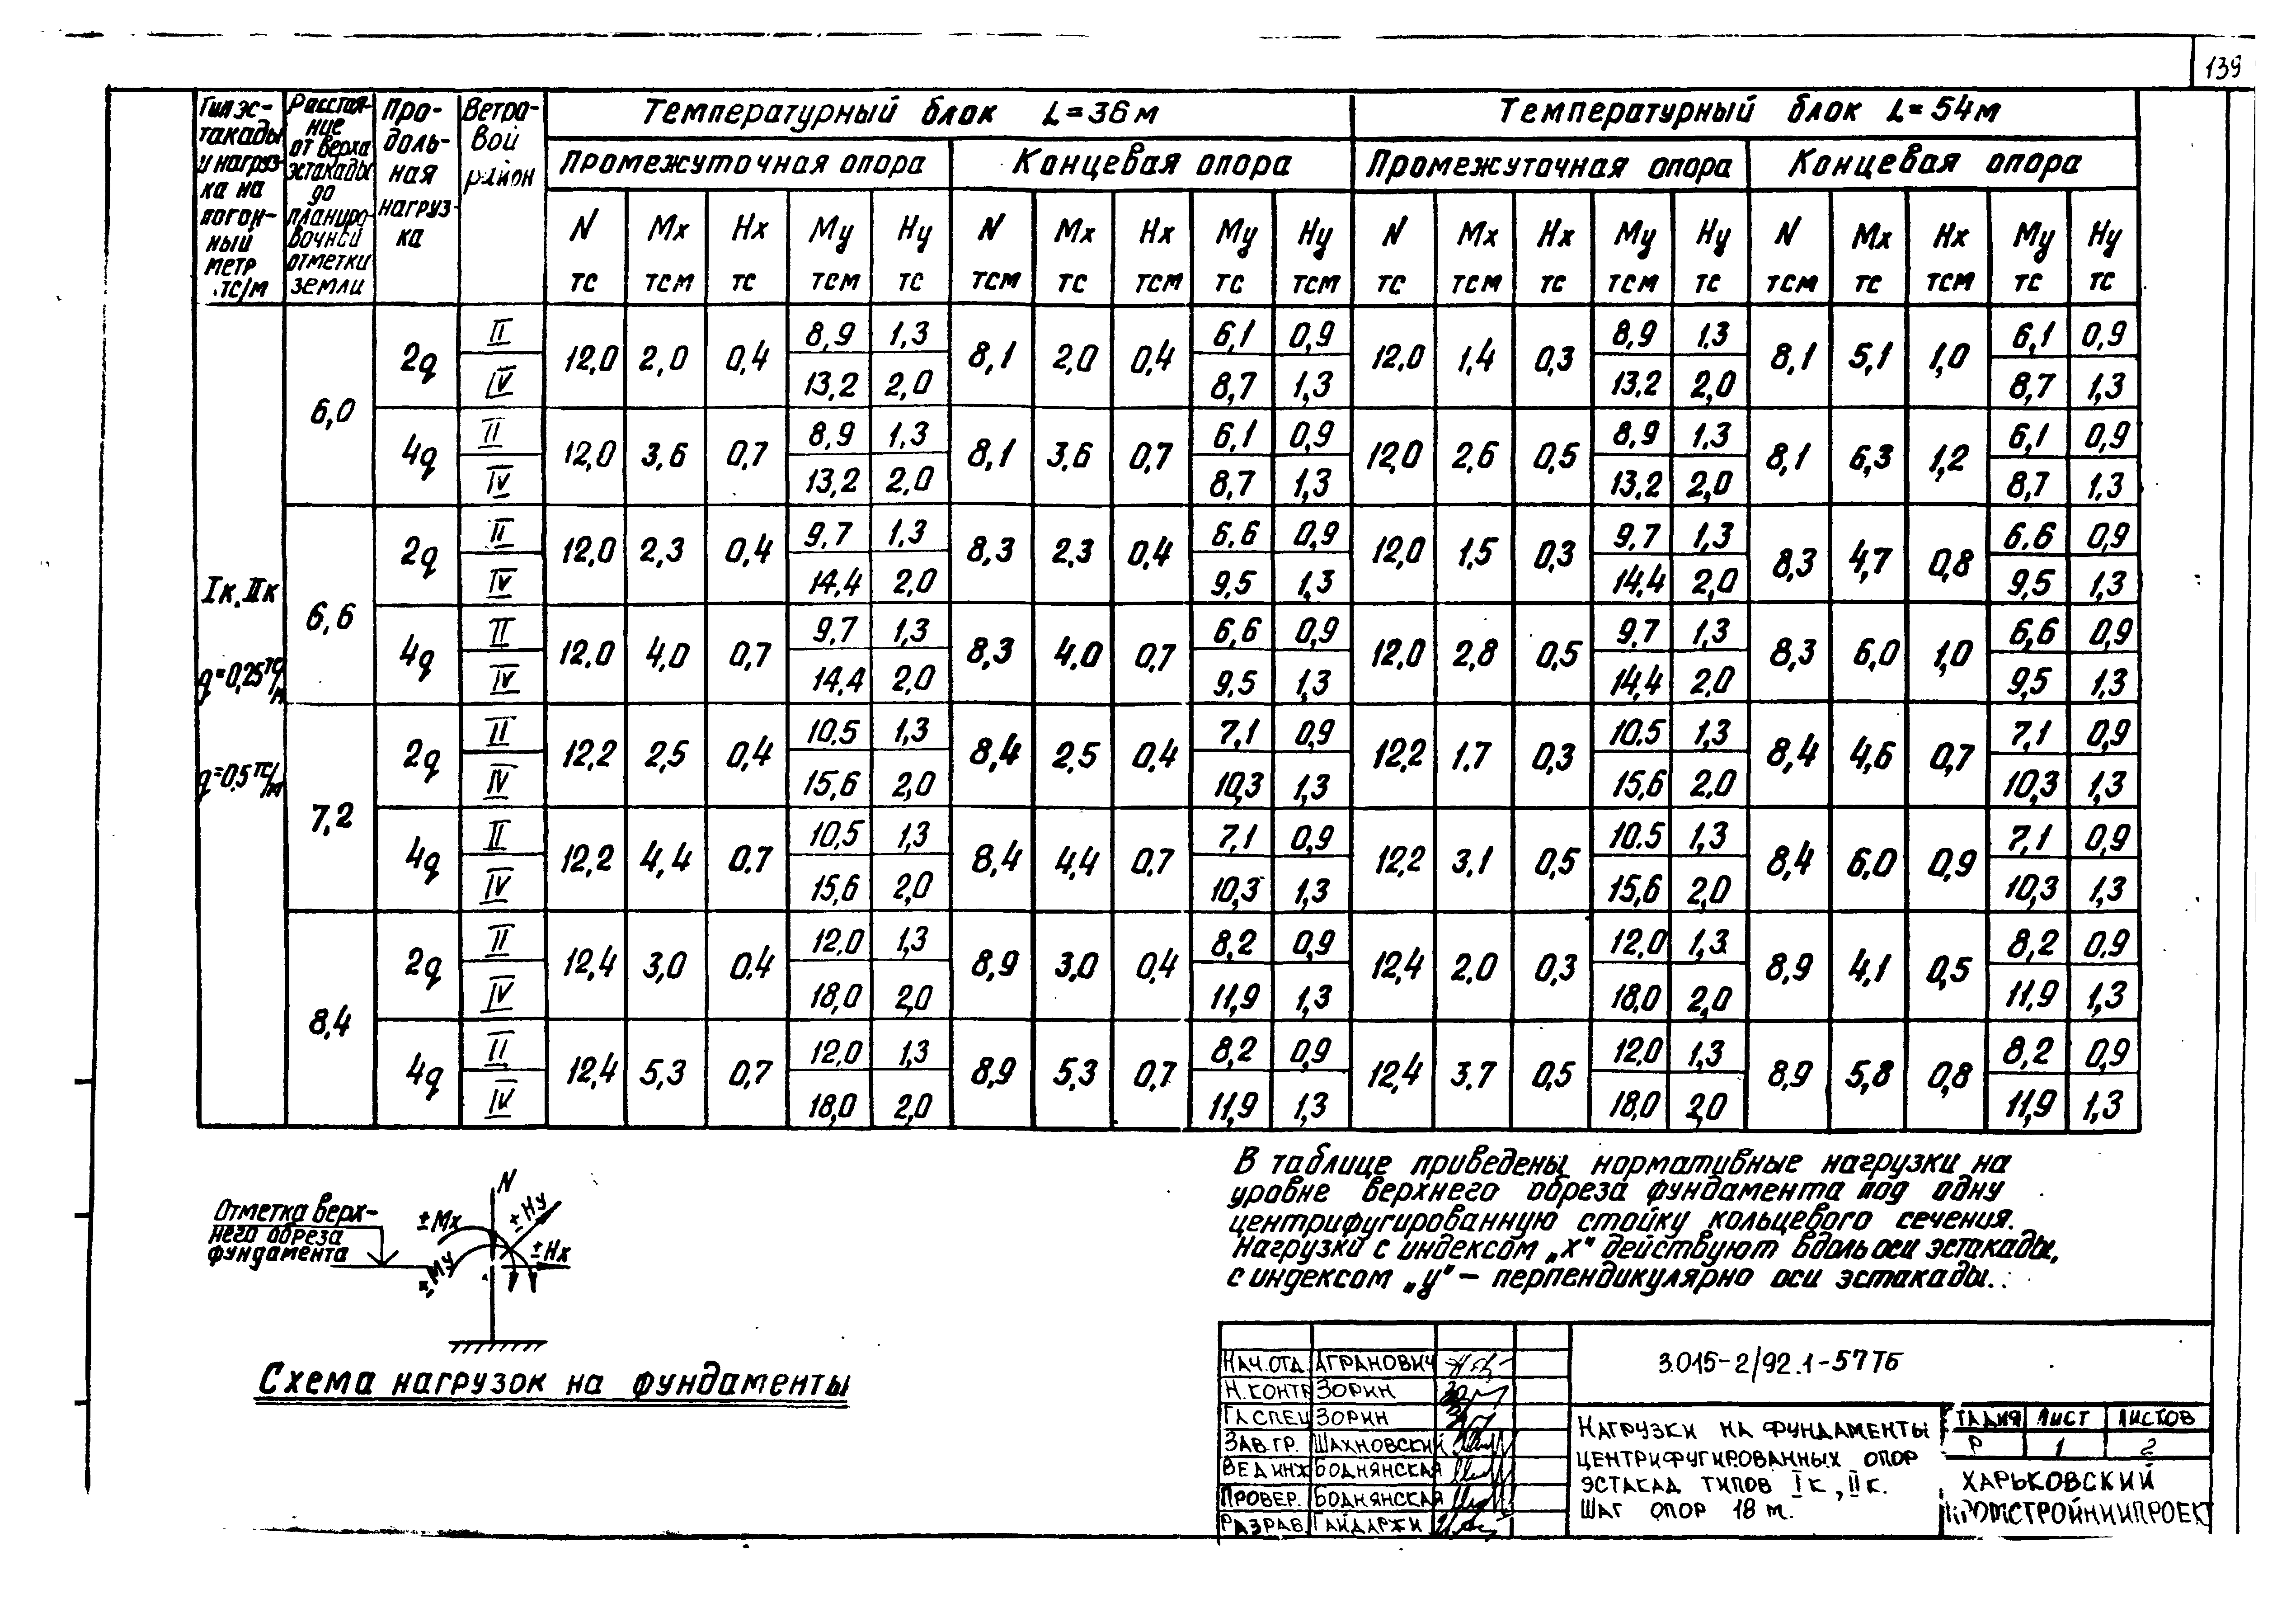 139
Тип эс-
такады
и нагруз-
ка на
погон-
ный
метр
тс/м
Расстоя-
ние
от верха
эстакады
до
планиро-
вочной
отметки
земли
Про-
доль-
ная
нагруз-
ка
Ветро-
вой
район
Температурный блок L=36м
Температурный блок L=54м
Промежуточная опора
Концевая опора
Промежуточная опора
Концевая опора
N Mx Hx My Hy N Mx Hx My Hy N Mx Hx My Hy N Mx Hx My Hy
тс тсм тс тсм тс тсм тс тсм тс тсм тс тсм тс тсм тс тсм тс тсм тс тс
Iк, IIк
q=0,25 тс/м
q=0,5 тс/м
6,0
2q II 12,0 2,0 0,4 8,9 1,3 8,1 2,0 0,4 6,1 0,9 12,0 1,4 0,3 8,9 1,3 8,1 5,1 1,0 6,1 0,9
IV 13,2 2,0 8,7 1,3 13,2 2,0 8,7 1,3
4q II 12,0 3,6 0,7 8,9 1,3 8,1 3,6 0,7 6,1 0,9 12,0 2,6 0,5 8,9 1,3 8,1 6,3 1,2 6,1 0,9
IV 13,2 2,0 8,7 1,3 13,2 2,0 8,7 1,3
6,6
2q II 12,0 2,3 0,4 9,7 1,3 8,3 2,3 0,4 6,6 0,9 12,0 1,5 0,3 9,7 1,3 8,3 4,7 0,8 6,6 0,9
IV 14,4 2,0 9,5 1,3 14,4 2,0 9,5 1,3
4q II 12,0 4,0 0,7 9,7 1,3 8,3 4,0 0,7 6,6 0,9 12,0 2,8 0,5 9,7 1,3 8,3 6,0 1,0 6,6 0,9
IV 14,4 2,0 9,5 1,3 14,4 2,0 9,5 1,3
7,2
2q II 12,2 2,5 0,4 10,5 1,3 8,4 2,5 0,4 7,1 0,9 12,2 1,7 0,3 10,5 1,3 8,4 4,6 0,7 7,1 0,9
IV 15,6 2,0 10,3 1,3 15,6 2,0 10,3 1,3
4q II 12,2 4,4 0,7 10,5 1,3 8,4 4,4 0,7 7,1 0,9 12,2 3,1 0,5 10,5 1,3 8,4 6,0 0,9 7,1 0,9
IV 15,6 2,0 10,3 1,3 15,6 2,0 10,3 1,3
8,4
2q II 12,4 3,0 0,4 12,0 1,3 8,9 3,0 0,4 8,2 0,9 12,4 2,0 0,3 12,0 1,3 8,9 4,1 0,5 8,2 0,9
IV 18,0 2,0 11,9 1,3 18,0 2,0 11,9 1,3
4q II 12,4 5,3 0,7 12,0 1,3 8,9 5,3 0,7 8,2 0,9 12,4 3,7 0,5 12,0 1,3 8,9 5,8 0,8 8,2 0,9
IV 18,0 2,0 11,9 1,3 18,0 2,0 11,9 1,3
Отметка верх-
него обреза
фундамента
N
±Mx
±Hy
±My
±Hx
Схема нагрузок на фундаменты
В таблице приведены нормативные нагрузки на
уровне верхнего обреза фундамента под одну
центрифугированную стойку кольцевого сечения.
Нагрузки с индексом „х" действуют вдоль оси эстакады,
с индексом „у" – перпендикулярно оси эстакады.
Нач.отд. Агранович
Н.контр Зорин
Гл спец Зорин
Зав.гр. Шахновский
Вед инж Боднянская
Провер. Боднянская
Разраб. Гайдаржи
3.015-2/92.1-57ТБ
Нагрузки на фундаменты
центрифугированных опор
эстакад типов Iк, IIк.
Шаг опор 18 м.
Стадия Лист Листов
Р 1 2
Харьковский
Промстройниипроект